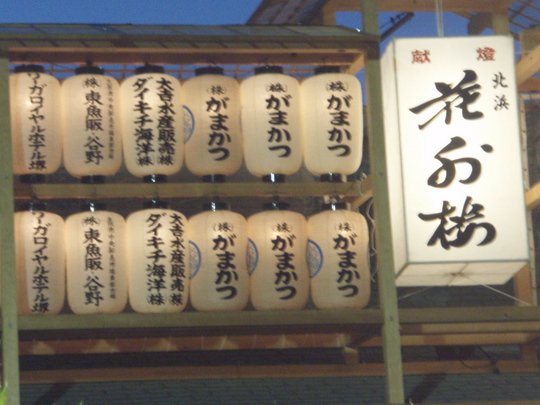 リーガロイヤルホテル堺
㈱東魚販谷野
大吉水産販売㈱
ダイキチ海洋㈱
㈱がまかつ
㈱がまかつ
㈱がまかつ
リーガロイヤルホテル堺
㈱東魚販谷野
大吉水産販売㈱
ダイキチ海洋㈱
㈱がまかつ
㈱がまかつ
㈱がまかつ
献燈
北浜
花外楼